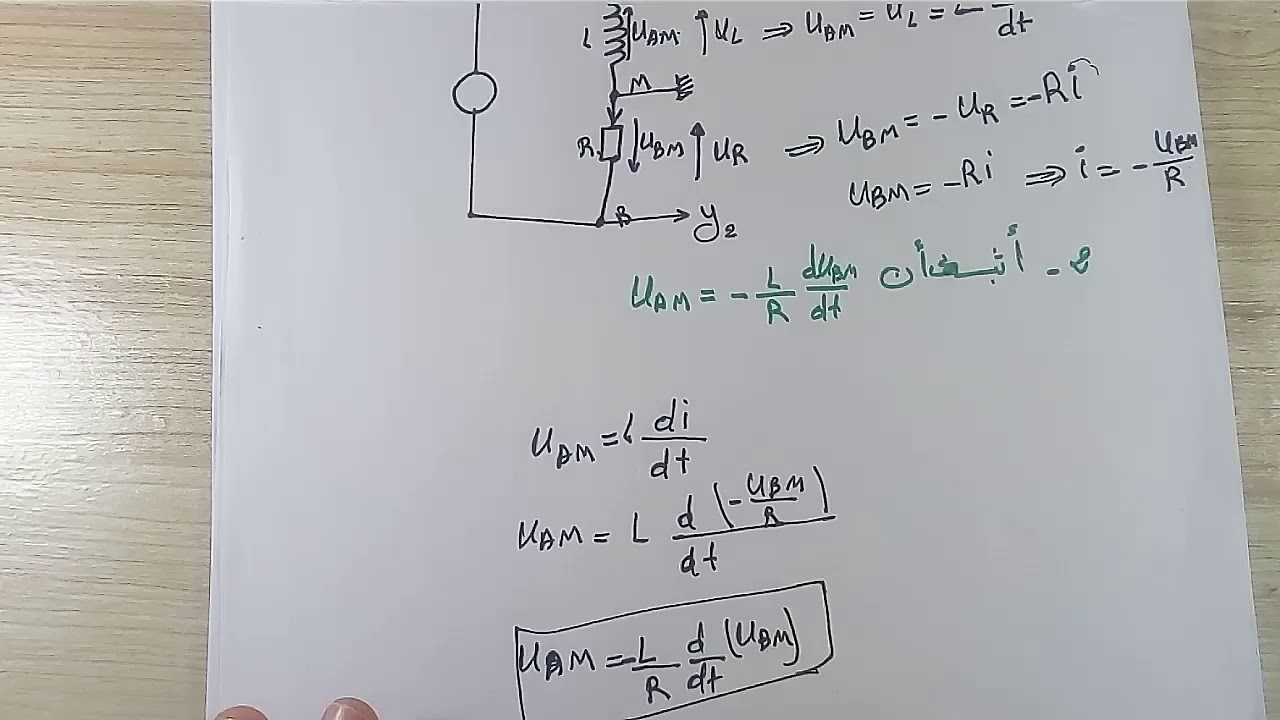 L U_AM U_L ⇒ U_AM = U_L = L di/dt
M
R U_BM U_R ⇒ U_BM = - U_R = -Ri
U_BM = -Ri ⇒ i = - U_BM/R
B y_2
2 - أثبت أن U_AM = - L/R dU_BM/dt
U_AM = L di/dt
U_AM = L d(-U_BM/R)/dt
U_AM = -L/R d/dt (U_BM)